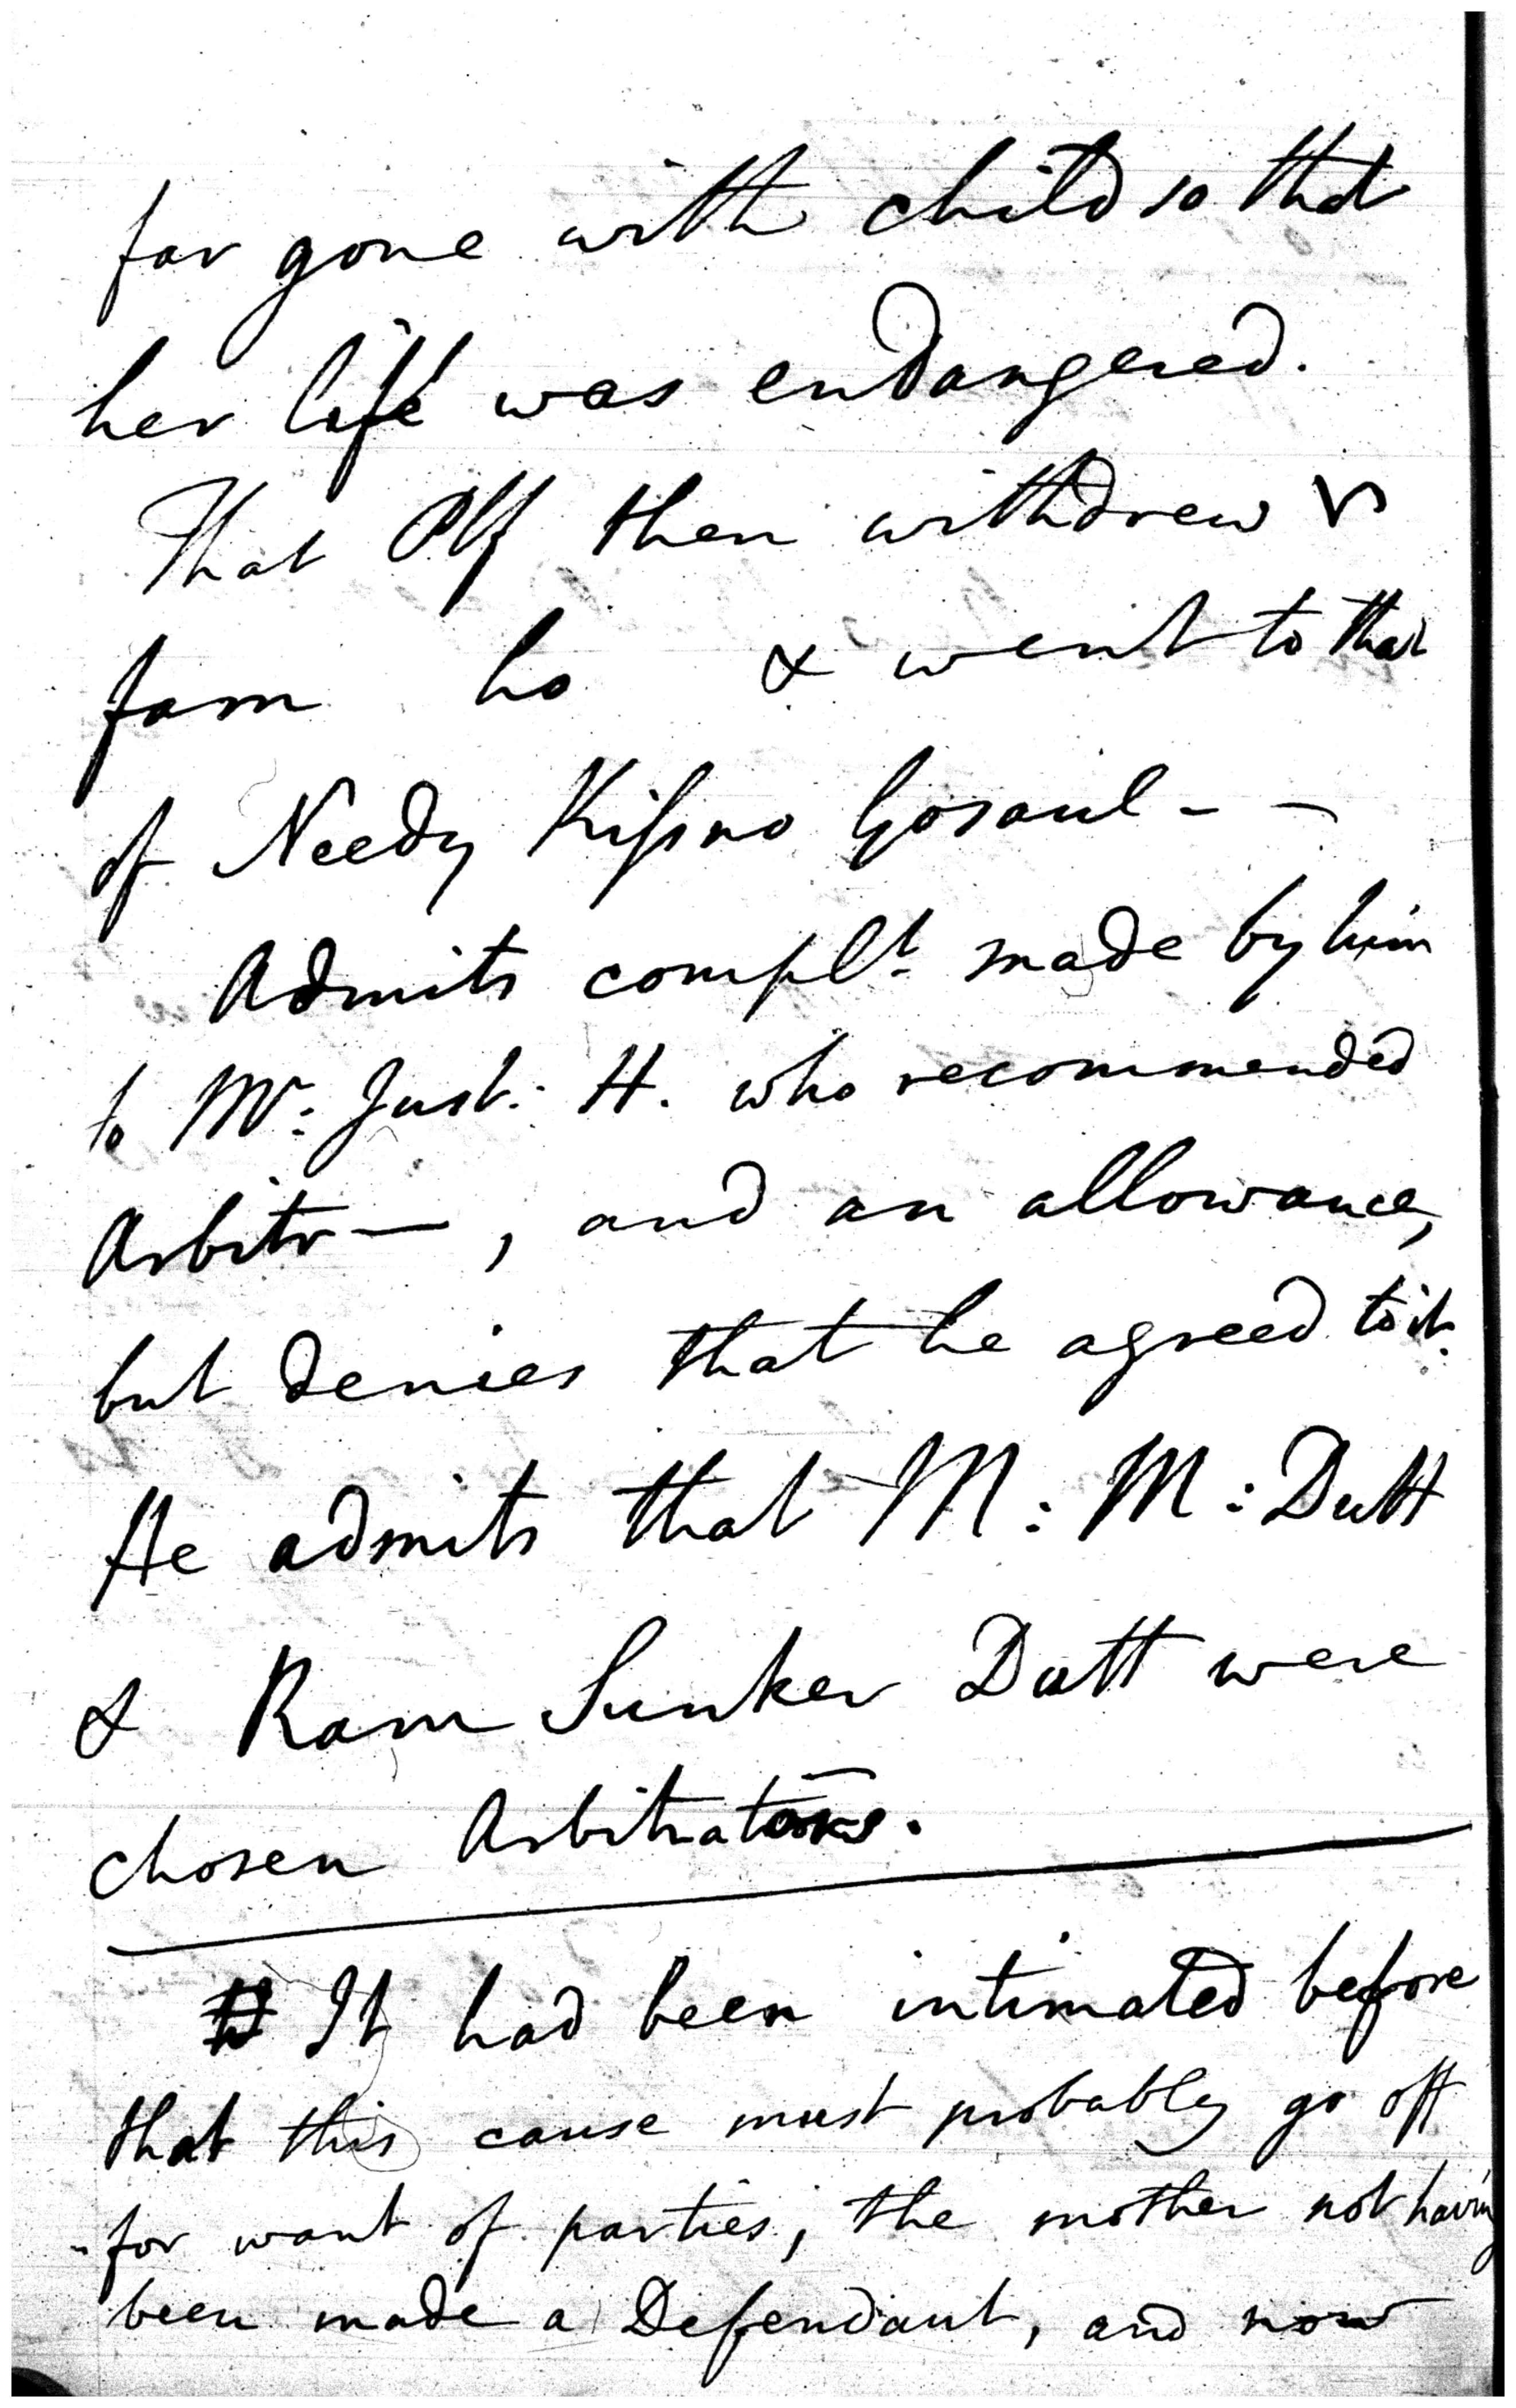 far gone with child so that
her life was endangered.
That Plf then withdrew
fam ho & went to that
of Needy Kissno Gosaul - -
Admits complt. made by him
to Mr: Just: H. who recommended
Arbitr—, and an allowance,
but denies that he agreed to it.
He admits that M: M: Dutt
& Ram Sunker Dutt were
chosen Arbitrators.
It had been intimated before
that this cause must probably go off
for want of parties, the mother not having
been made a Defendant, and now